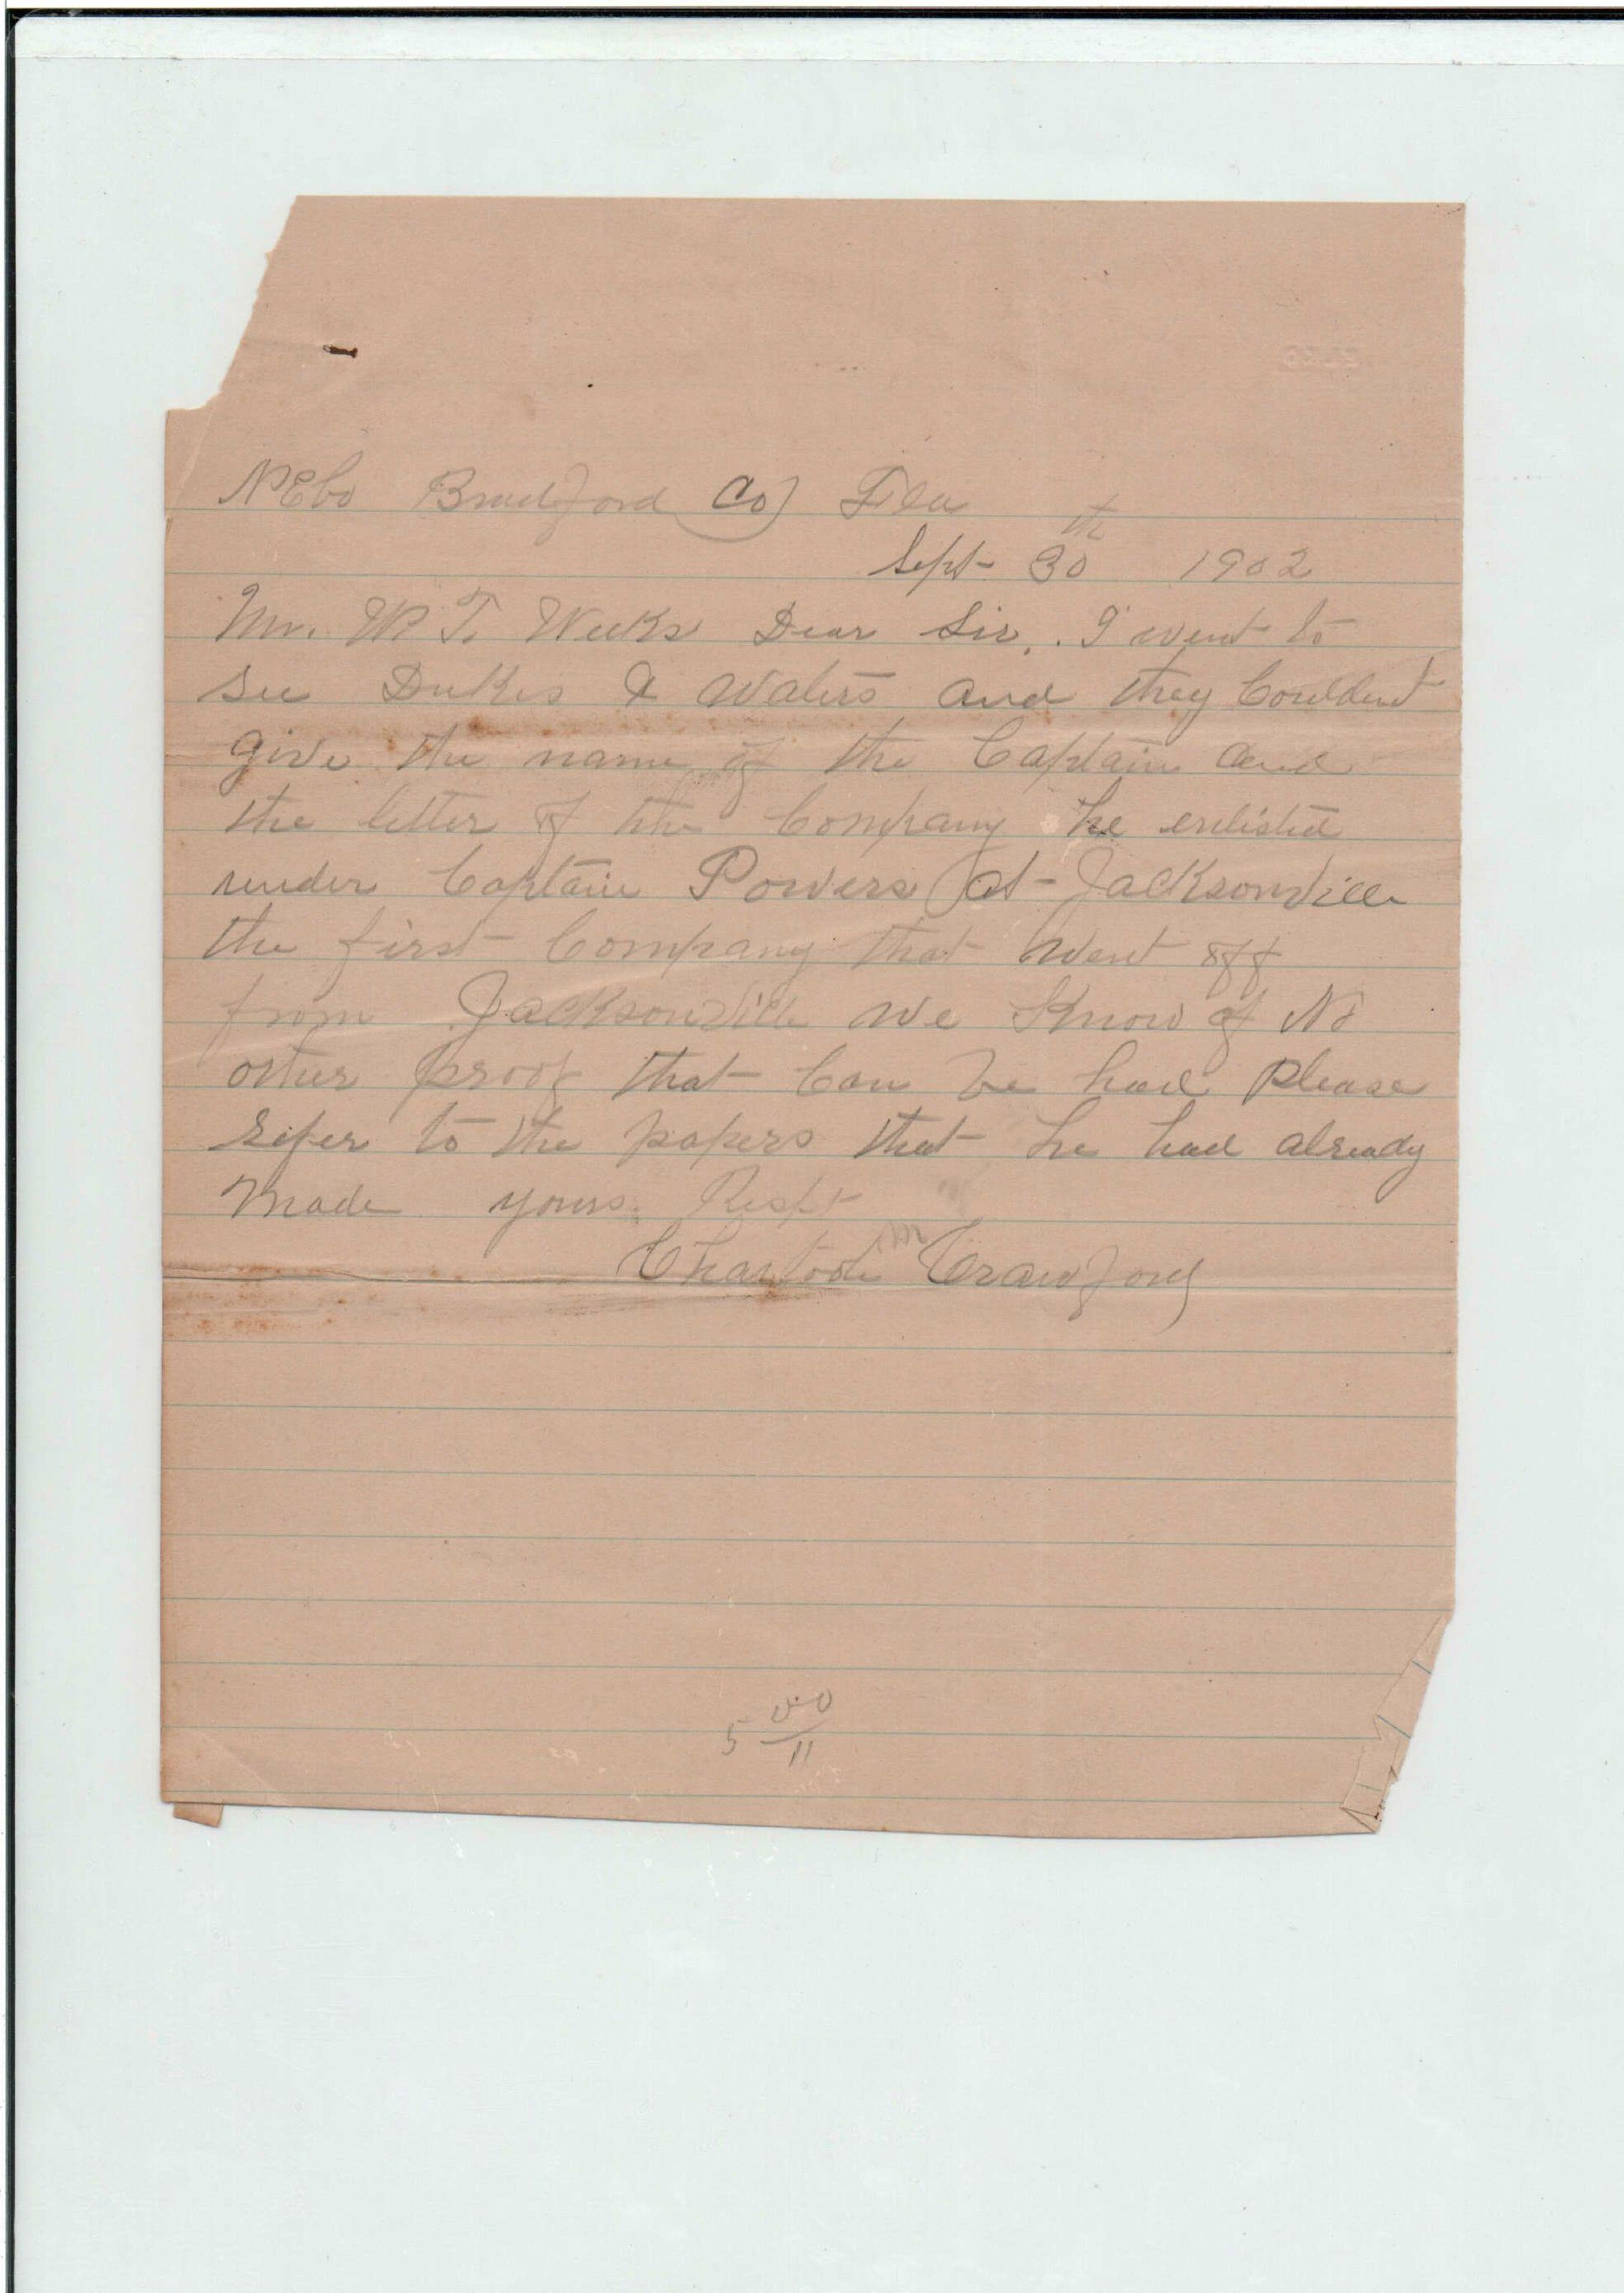 NEbo Bradford Co Fla
Sept 30th 1902
Mr. W T. Weeks Dear Sir. I went to
see Dukes & Waters and they Couldent
give the name of the Captain and
the letter of the Company he enlisted
under Captain Powers at Jacksonville
the first Company that went off
from Jacksonville we Know of No
other proof that Can be had Please
refer to the papers that he had already
made yours Respt
M Crawford
5 00/11